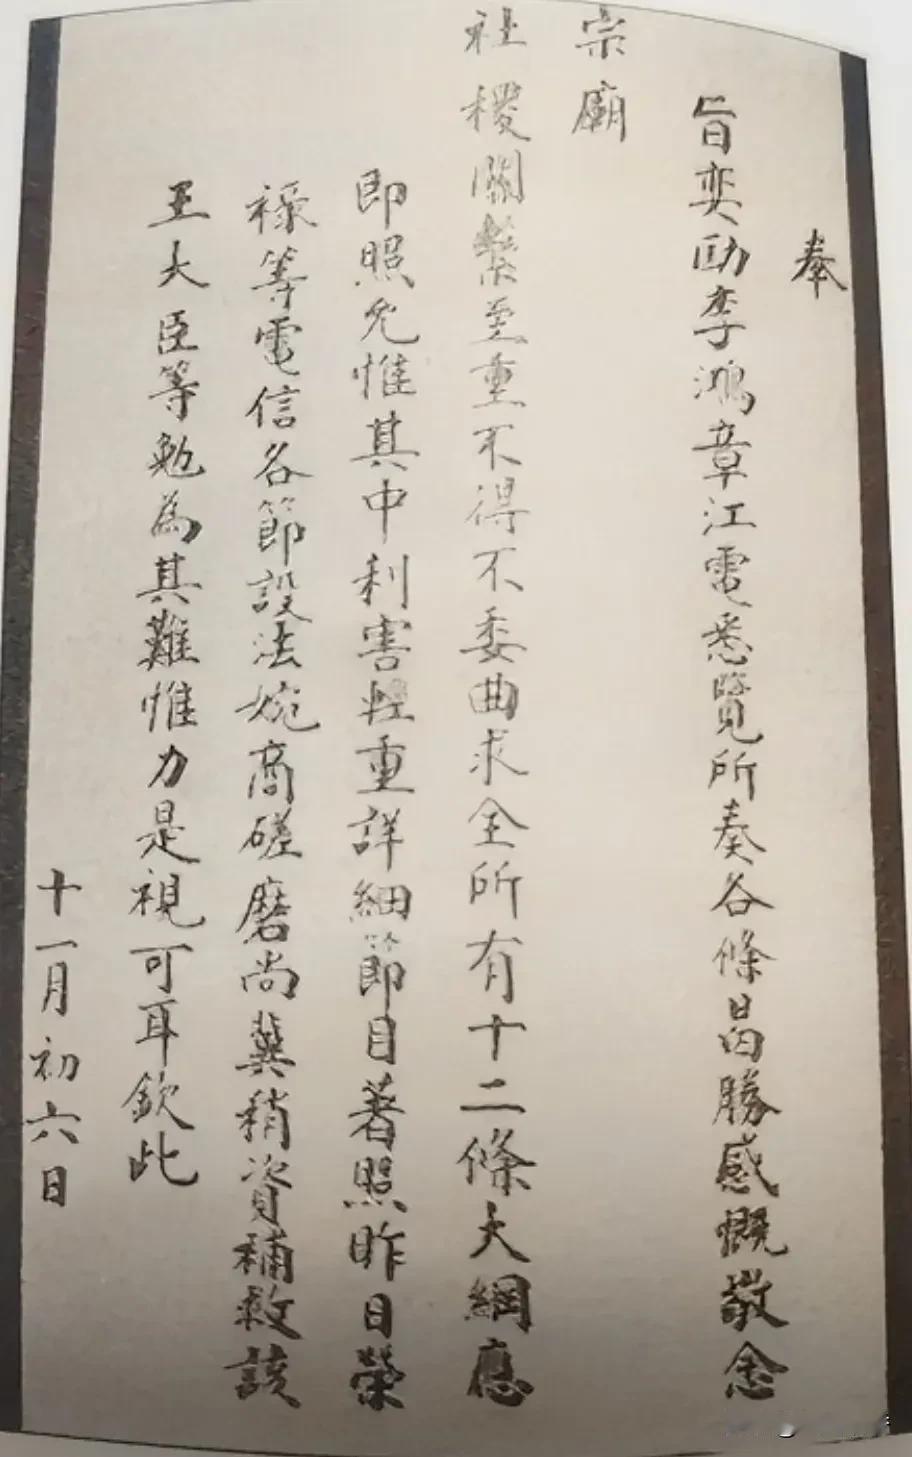 奉
旨奕劻李鴻章江電悉覽所奏各條曷勝感慨敬念
宗廟
社稷關繫至重不得不委曲求全所有十二條大綱應
即照允惟其中利害輕重詳細節目著照昨日榮
祿等電信各節設法婉商磋磨尚冀稍資補救該
王大臣等勉為其難惟力是視可耳欽此
十一月初六日